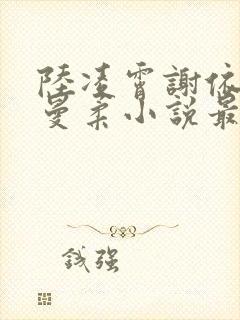 陸凌霄謝依
曼柔小說最
錢强